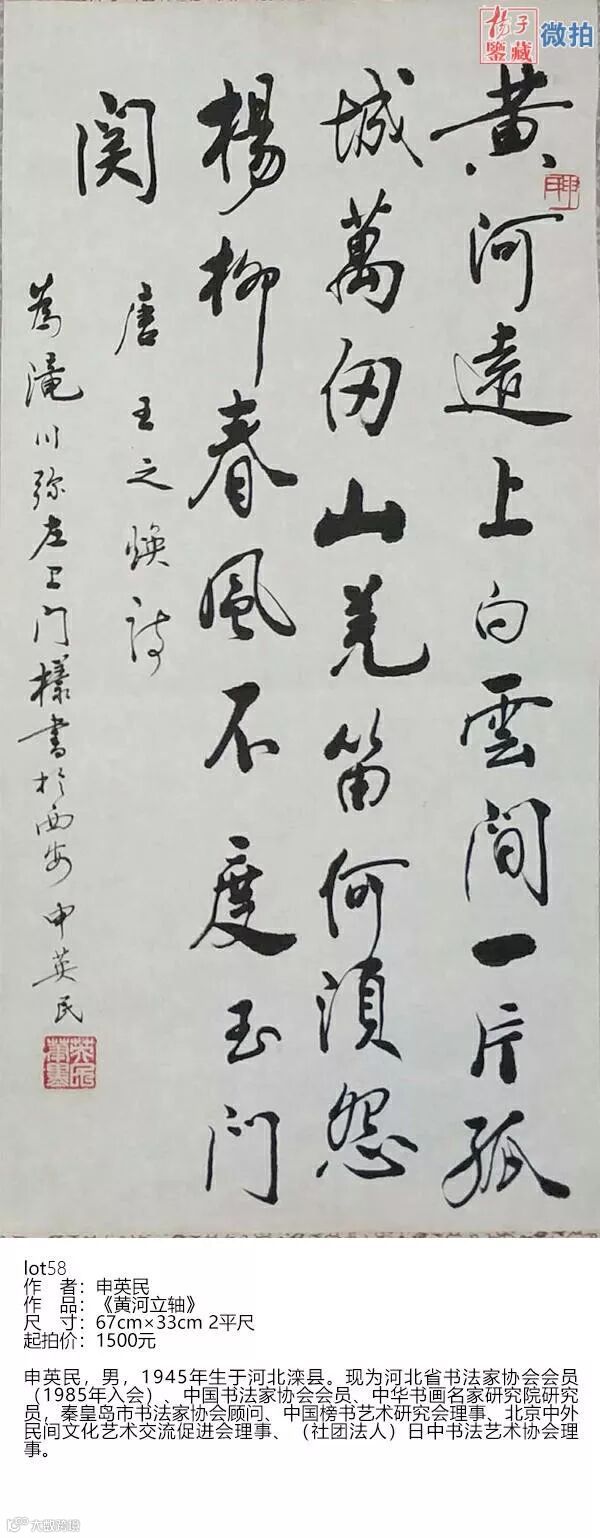 杨子
鉴藏
微拍
黄河遠上白雲间一片孤
城萬仞山羌笛何須怨
楊柳春風不度玉门
関
唐王之焕诗
為滝川弥左卫门様書於西安申英民
lot58
作 者：申英民
作 品：《黄河立轴》
尺 寸：67cm×33cm 2平尺
起拍价：1500元
申英民，男，1945年生于河北滦县。现为河北省书法家协会会员
（1985年入会）、中国书法家协会会员、中华书画名家研究院研究
员，秦皇岛市书法家协会顾问、中国榜书艺术研究会理事、北京中外
民间文化艺术交流促进会理事、（社团法人）日中书法艺术协会理
事。
大数跨境